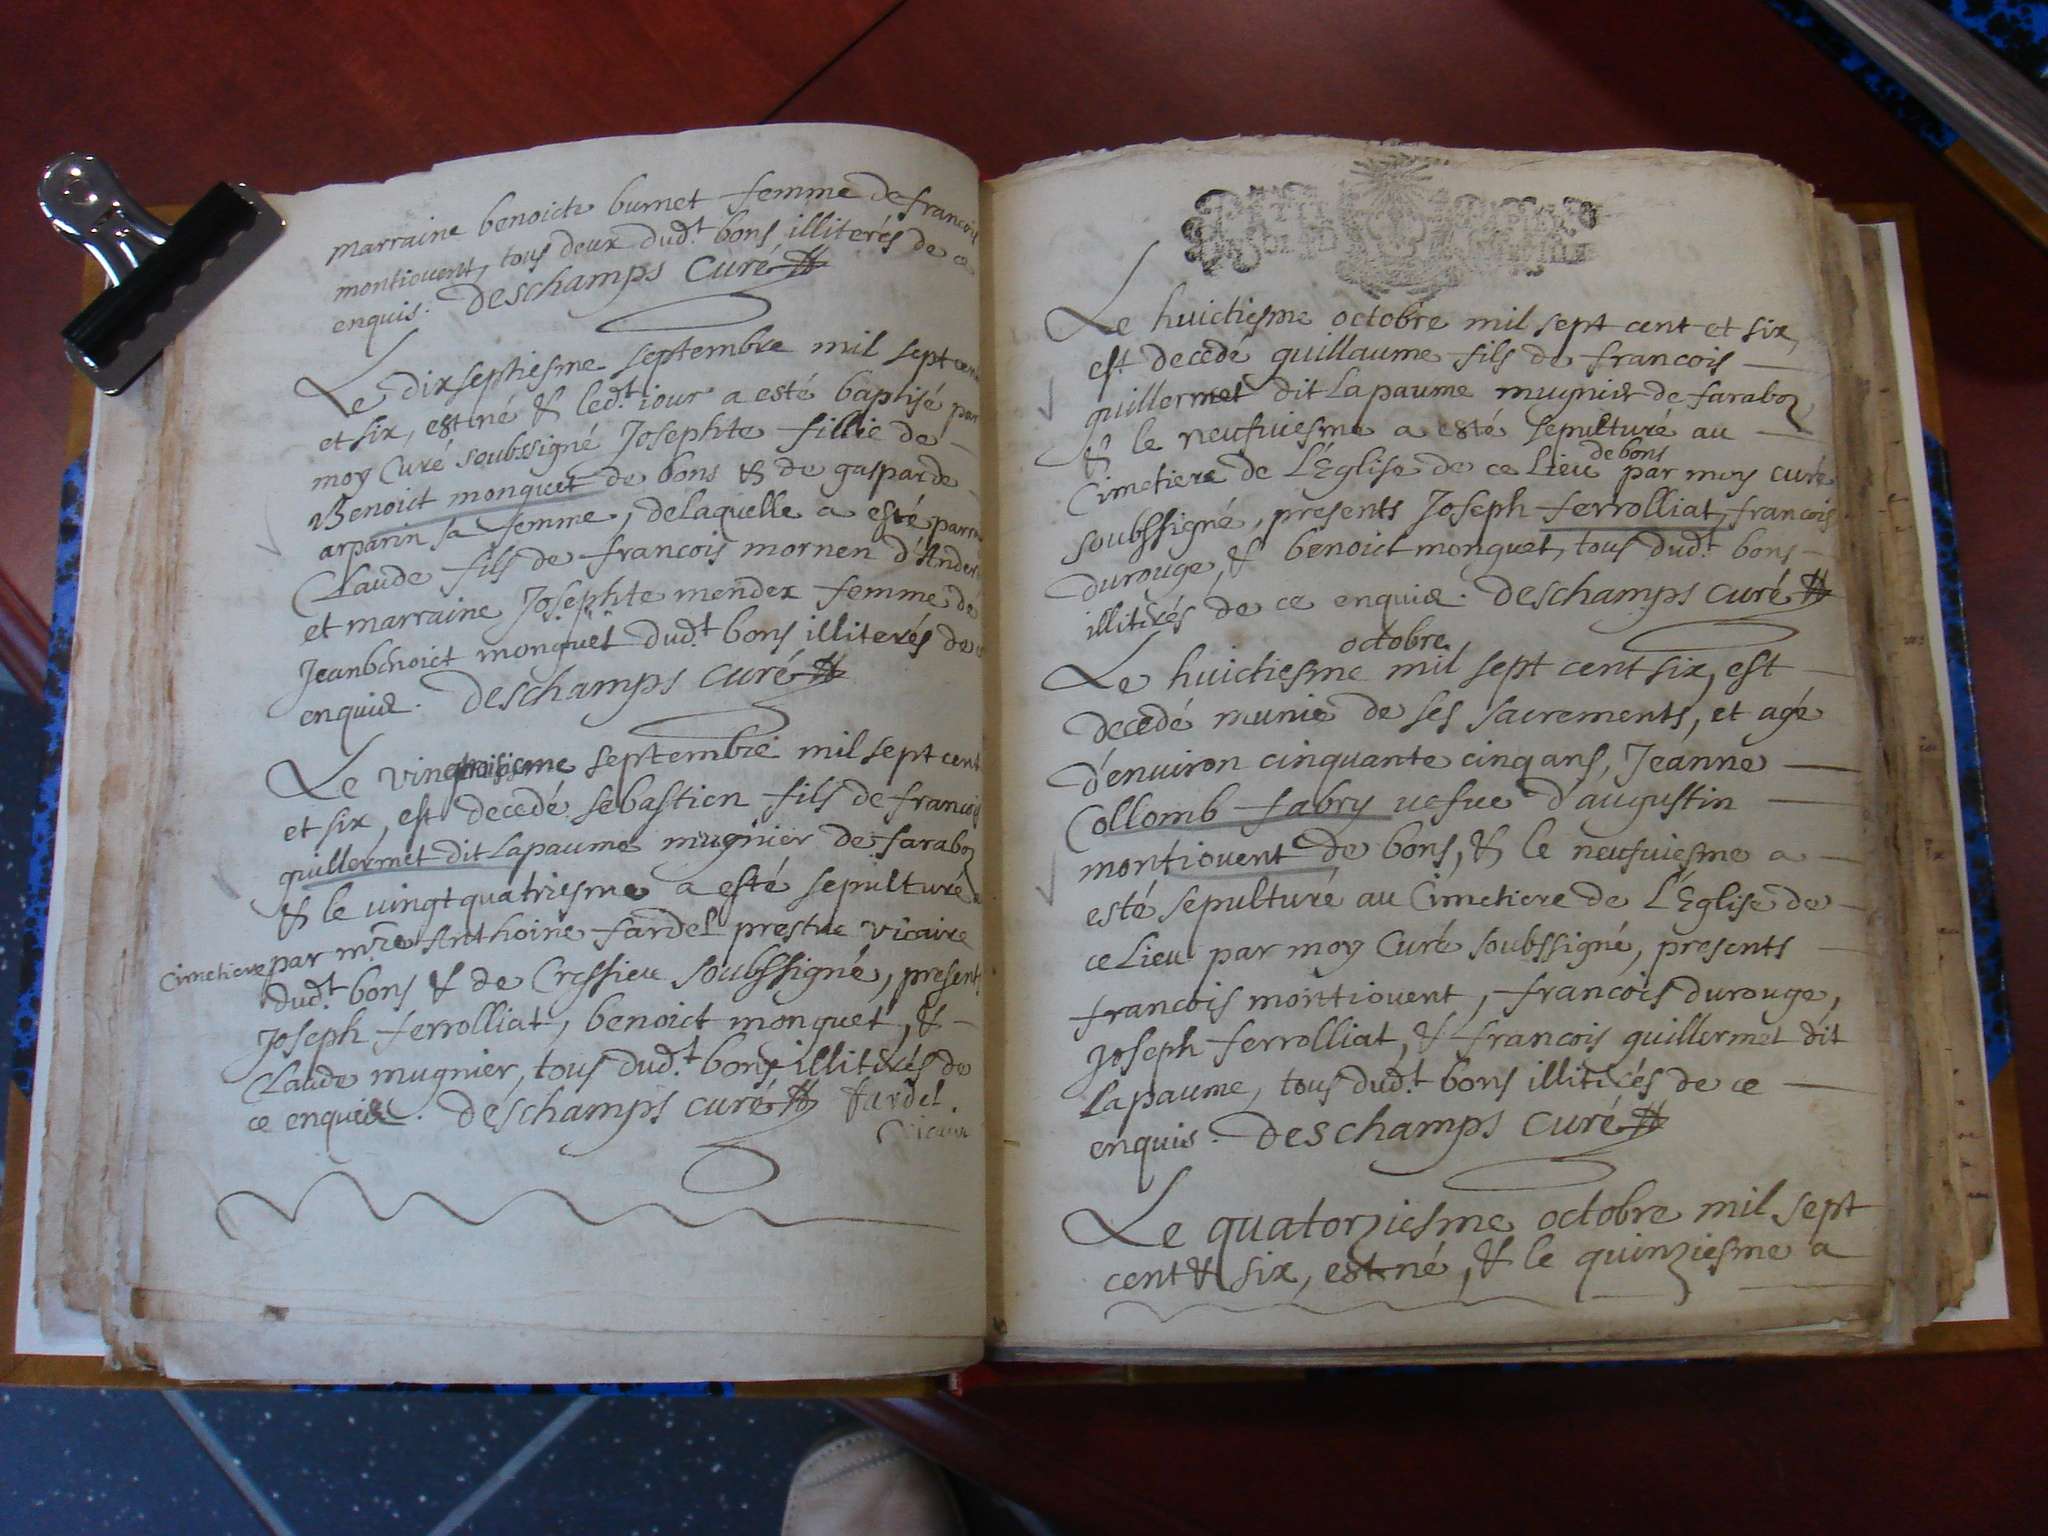 marraine benoicte burnet femme de francois
montiouent, tous deux dud.t bons illiterés de ce
enquis. Deschamps Curé
Le dixseptiesme septembre mil sept cent
et six, est né & led.t iour a esté baptisé par
moy Curé soubssigné Josephte fillie de
Benoict monquet de bons & de gasparde
arparin sa femme, delaquelle a esté parrain
Claude fils de francois mornen d'Andert
et marraine Josephte mendex femme de
Jeanbenoict monquet dud.t bons illiterés de ce
enquis. Deschamps Curé
Le vingttroisiesme septembre mil sept cent
et six, est decedé sebastien fils de francois
guillermet dit Lapaume mugnier de faraboz
& le vingtquatriesme a esté sepulturé
cimetiere par m.re Anthoine fardel prestre vicaire
dud.t bons & de Cressieu soubssigné, presents
Joseph ferrolliat, benoict monquet, &
Claude mugnier, tous dud.t bons illiterés de
ce enquis. deschamps curé fardel.
Vicaire
Le huictiesme octobre mil sept cent et six,
est decedé guillaume fils de francois
guillermet dit Lapaume mugnier de faraboz
& le neufuiesme a esté sepulturé au
de bons
Cimetiere de L'Eglise de ce Lieu par moy curé
soubssigné, presents Joseph ferrolliat, francois
durouge, & benoict monquet, tous dud.t bons
illiterés de ce enquis. Deschamps curé
octobre
Le huictiesme mil sept cent six, est
decedé munie de ses sacrements, et agé
d'enuiron cinquante cinq ans, Jeanne
Collomb fabry uefue d'augustin
montiouent de bons, & le neufuiesme a
esté sepulturé au Cimetiere de L'Eglise de
ce Lieu par moy Curé soubssigné, presents
francois montiouent, francois durouge,
Joseph ferrolliat, & francois guillermet dit
Lapaume, tous dud.t bons illiterés de ce
enquis. Deschamps Curé
Le quatorziesme octobre mil sept
cent & six, est né, & le quinziesme a